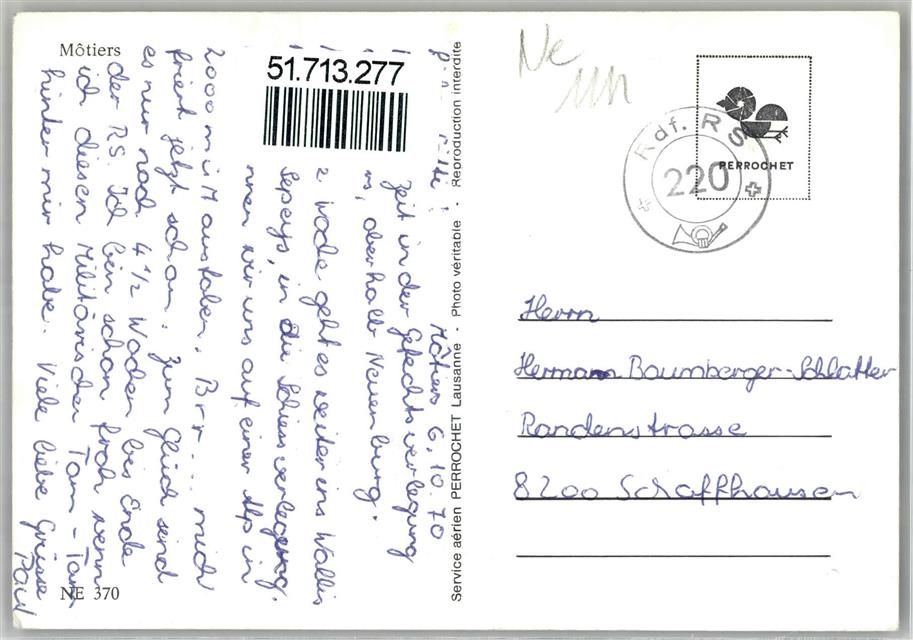 Môtiers
Môtiers 6.10.70
Zeit in der Gefechtsverlegung
oberhalb Neuenburg.
2 Woche geht es weiter ins Wallis
Sepeys, in die Schiessverlegung.
wir uns auf einer Alp in
2000 m ü M austoben. Brr.... mich
friert jetzt schon. Zum Glück sind
es nur noch 4 1/2 Wochen bis Ende
der RS. Ich bin schon froh wenn
ich diesen Militärischen Tam-Tam
hinter mir habe. Viele liebe Grüsse
Paul
NE 370
51.713.277
Service aérien PERROCHET Lausanne - Photo véritable - Reproduction interdite
Ne
Rdf. RS
220
PERROCHET
Herrn
Hermann Baumberger-Schlatter
Randenstrasse
8200 Schaffhausen